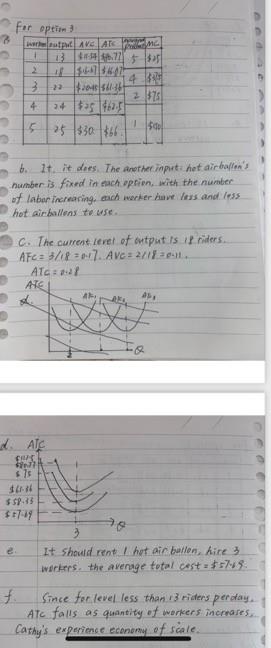 For option 3:
worker output AVC ATC marginal product MC
1 13 5 $25
2 18 4
3 22 $61.36 2 $75
4 24 $25 $62.5
5 25 $30 $66 1
b. It, it does. The another input: hot air ballon's
number is fixed in each option, with the number
of labor increasing, each worker have less and less
hot air ballons to use.
C. The current level of output is 18 riders.
AFC = 3/18 = 0.17. AVC = 2/18 = 0.11.
ATC = 0.28
ATC
Q
d. ATC
$75
$61.36
$58.33
$57.69
3 Q
e. It should rent 1 hot air ballon, hire 3
workers. the average total cost = $57.69.
f. Since for level less than 13 riders per day,
ATC falls as quantity of workers increases,
Cathy's experience economy of scale.